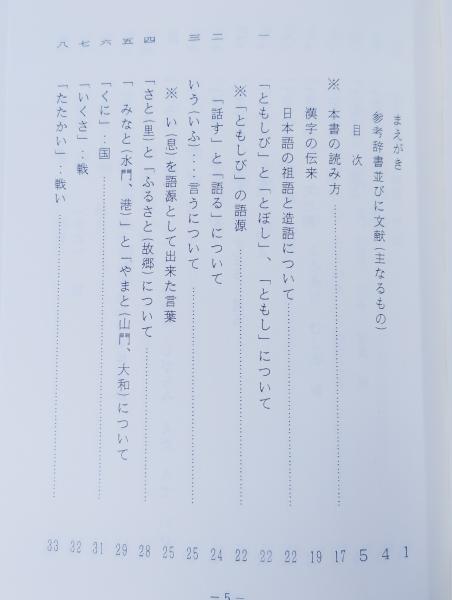 まえがき 1
参考辞書並びに文献(主なるもの) 4
目 次 5
※ 本書の読み方……………………… 17
漢字の伝来 19
日本語の祖語と造語について……………………… 22
一 「ともしび」と「とぼし」、「ともし」について 22
※「ともしび」の語源……………………… 22
二 「話す」と「語る」について 24
三 いう(いふ)‥‥言うについて……………………… 25
※ い(息)を語源として出来た言葉 25
四 「さと(里)と「ふるさと(故郷)について……………………… 28
五 「 みなと(水門、港)」と「やまと(山門、大和)について 29
六 「くに」‥国……………………… 31
七 「いくさ」‥戦 32
八 「たたかい」‥戦い……………………… 33
― 5 ―